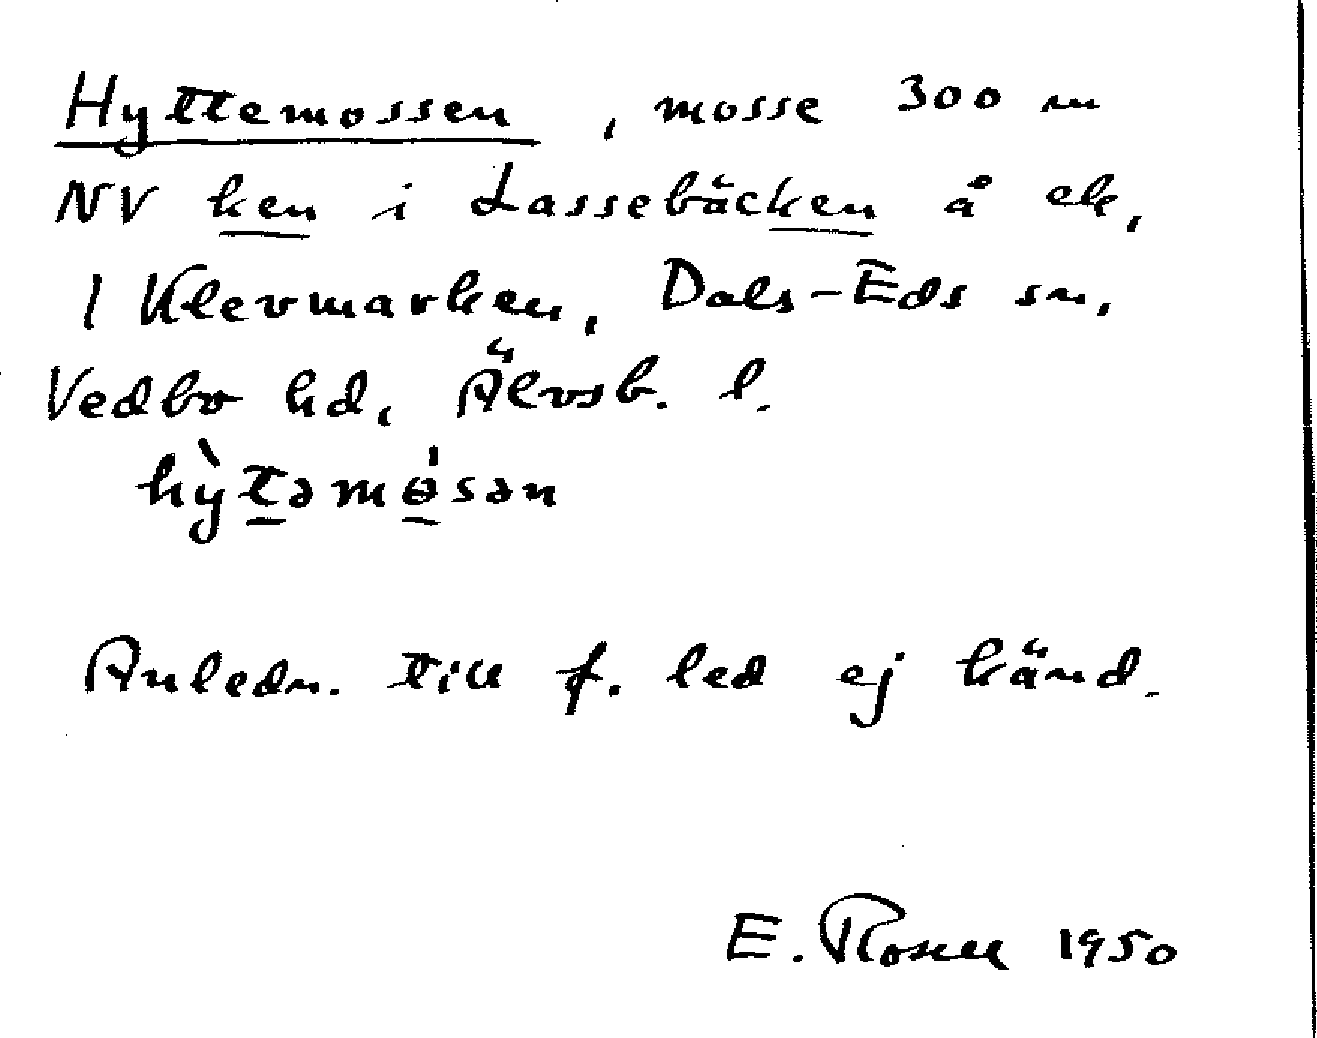 Hyttemossen, mosse 300 m
NV ken i Lassebäcken å ek.
1 Klevmarken, Dals-Eds sn,
Vedbo hd, Älvsb. l.
hỳ̖təmɵ́sən
Anledn. till f. led ej känd.
E. Rosell 1950